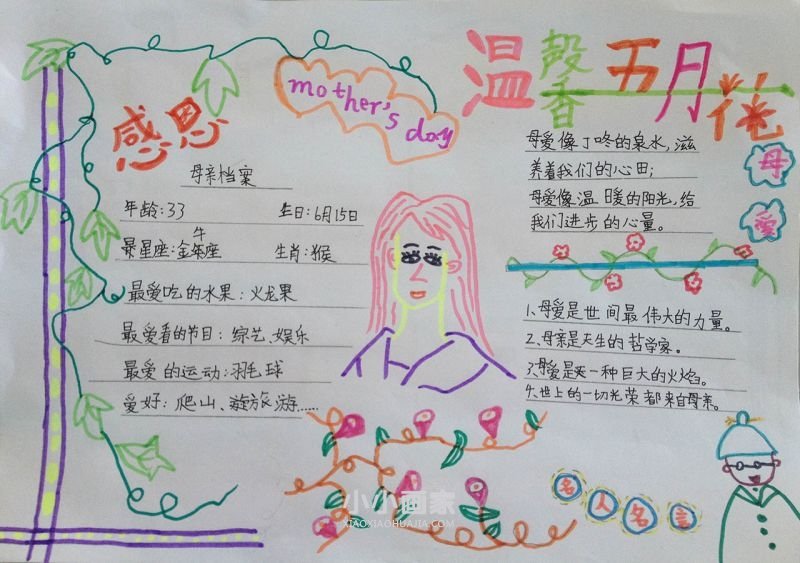 温馨五月花
mother's day
感恩
母亲档案
年龄:33 生日:6月15日
星座:金牛座 生肖:猴
最爱吃的水果:火龙果
最爱看的节目:综艺、娱乐
最爱的运动:羽毛球
爱好:爬山、旅游……
母爱像丁咚的泉水,滋
养着我们的心田;
母爱像温暖的阳光,给
我们进步的心量。
母
爱
1、母爱是世间最伟大的力量。
2、母亲是天生的哲学家。
3、母爱是一种巨大的火焰。
4、世上的一切光荣都来自母亲。
名人名言
小小画家
XIAOXIAOHUAJIA.COM